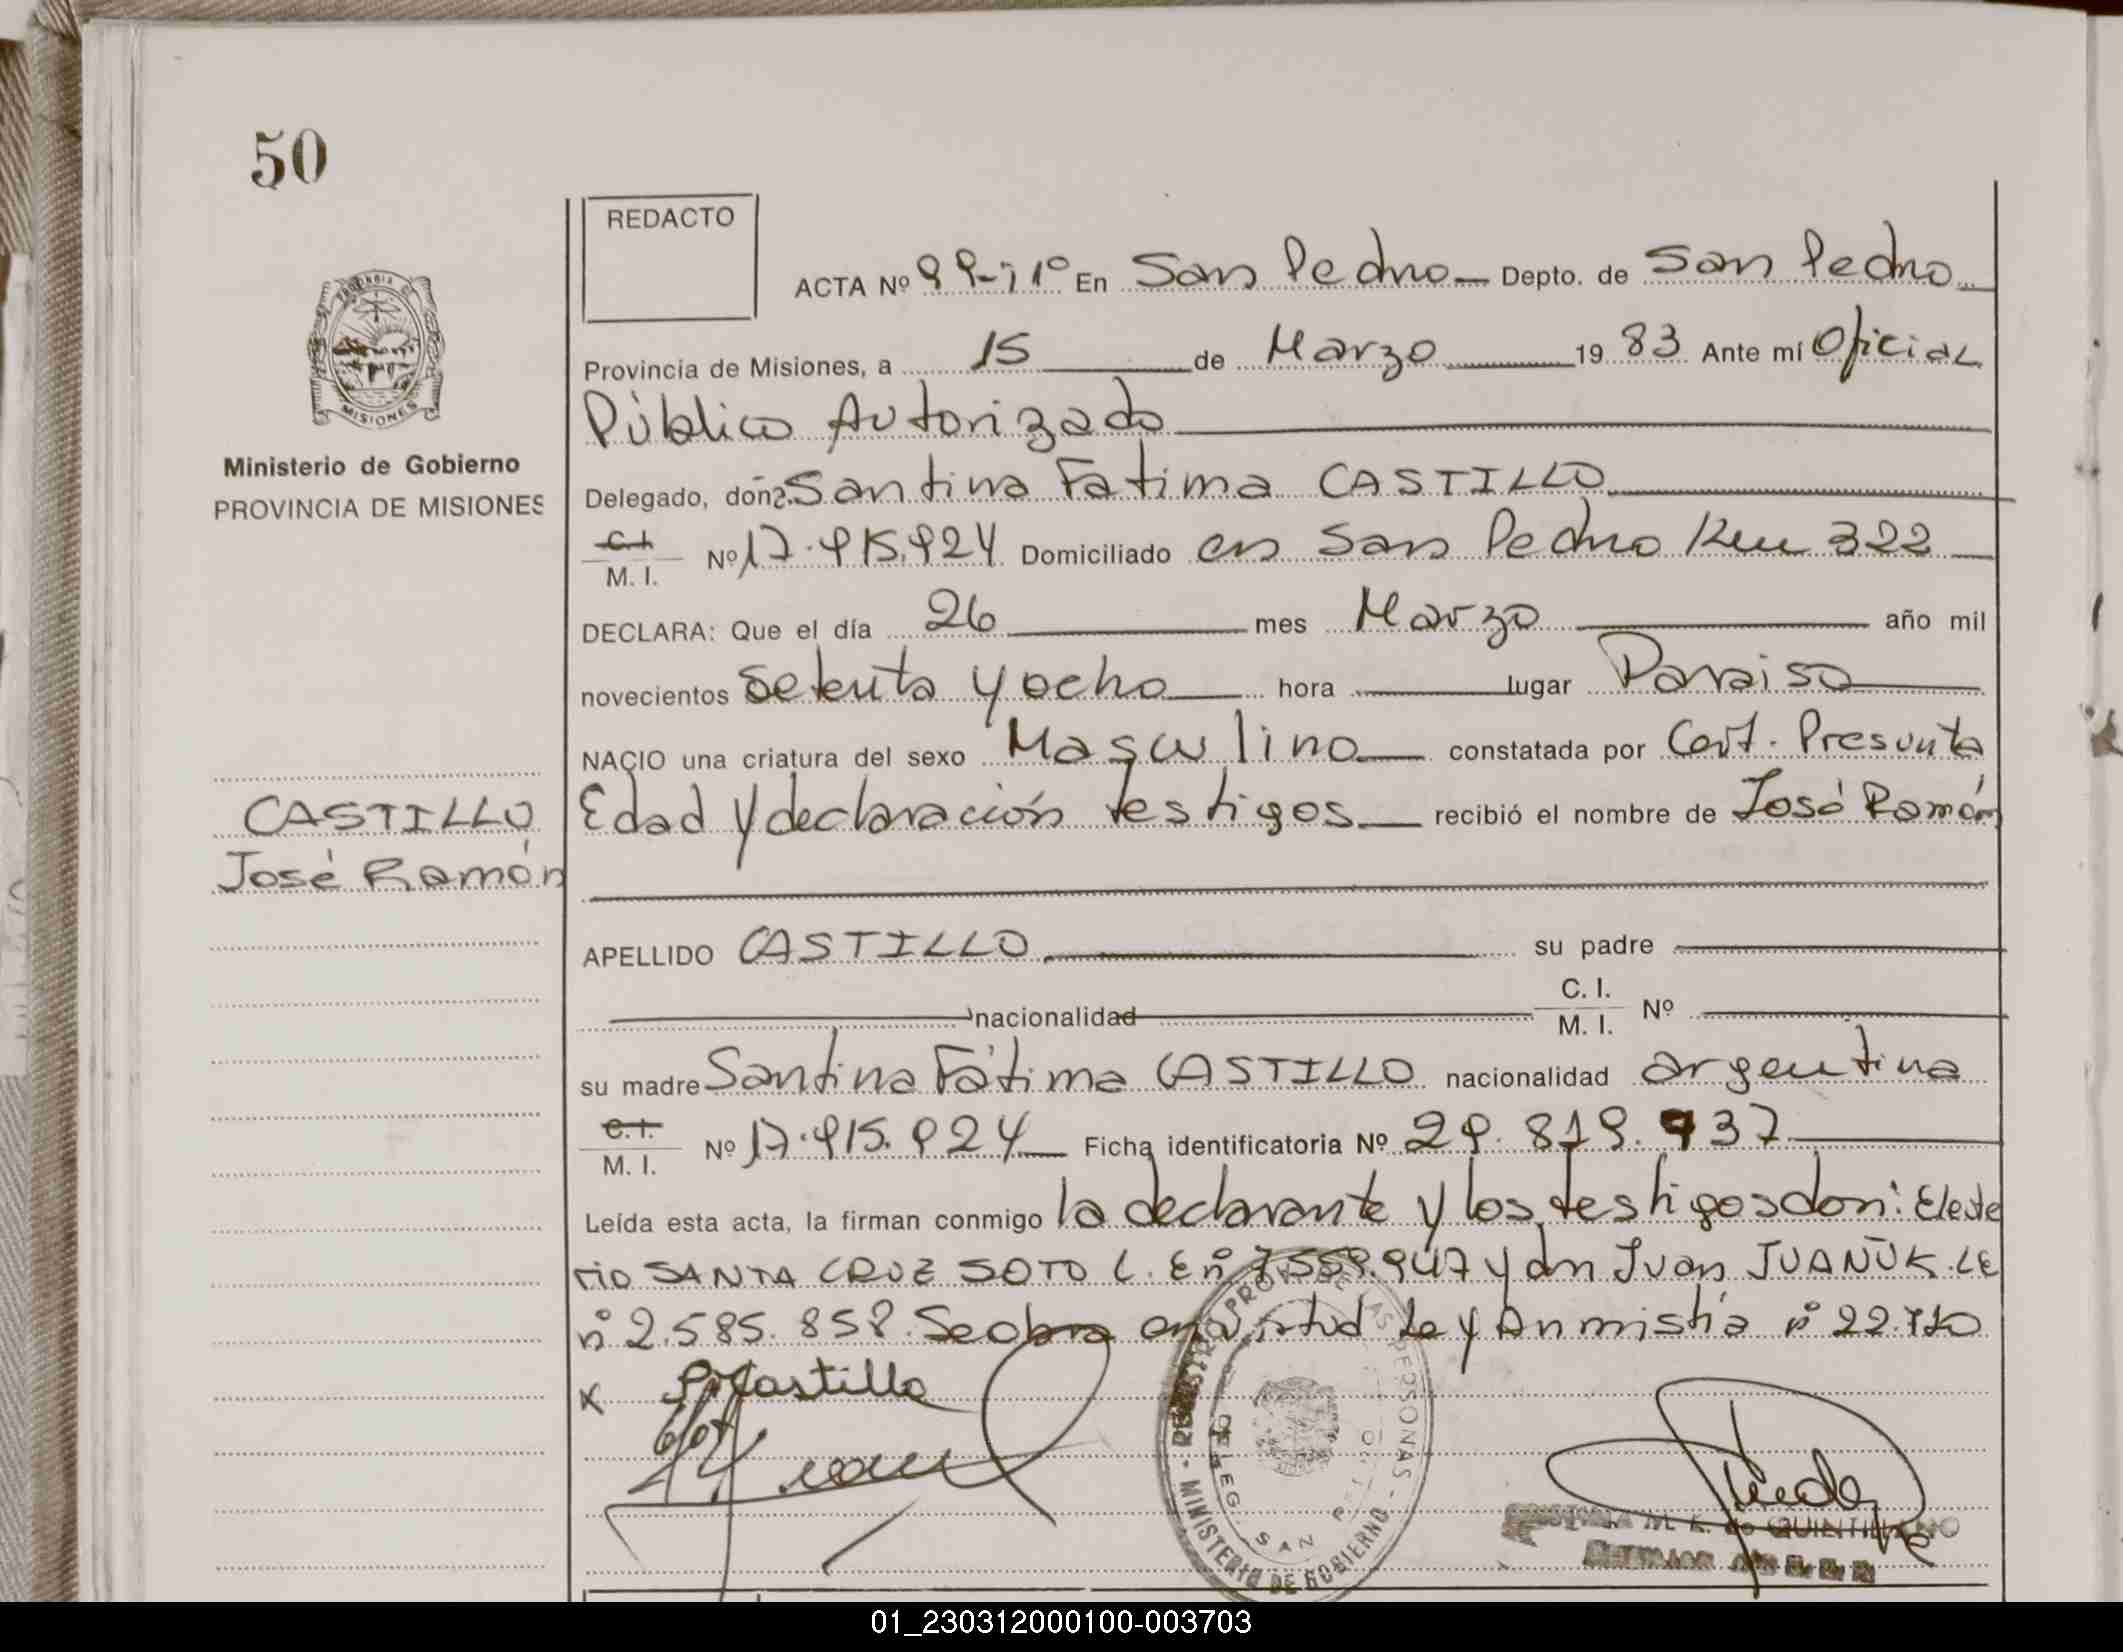 50
REDACTO
ACTA Nº 99-T1º En San Pedro Depto. de San Pedro
Provincia de Misiones, a 15 de Marzo 19 83 Ante mí Oficial
Público Autorizado
Ministerio de Gobierno
PROVINCIA DE MISIONES
Delegado, doña Santina Fatima CASTILLO
C.I. M. I. Nº 17.915.924 Domiciliado en San Pedro Km 322
DECLARA: Que el día 26 mes Marzo año mil
novecientos setenta y ocho hora lugar Paraiso
NACIO una criatura del sexo Masculino constatada por Cert. Presunta
CASTILLO
José Ramón
Edad y declaración testigos recibió el nombre de José Ramón
APELLIDO CASTILLO su padre
nacionalidad C. I. M. I. Nº
su madre Santina Fátima CASTILLO nacionalidad argentina
C.I. M. I. Nº 17.915.924 Ficha identificatoria Nº 29.819.937
Leída esta acta, la firman conmigo la declarante y los testigos don: Eleute
rio SANTA CRUZ SOTO L. E nº 7.559.947 y don Juan JUAÑUK. LE
nº 2.585.858. Se obra en virtud Ley Anmistía nº
x Castillo
REGISTRO PROV. DE LAS PERSONAS - MINISTERIO DE GOBIERNO
DELEG. SAN PEDRO
QUINTILIANO
01_230312000100-003703